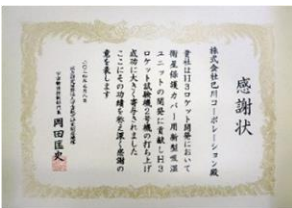 感謝状
株式会社巴川コーポレーション殿
貴社はH3ロケット開発において
衛星保護カバー用新型吸湿
ユニットの開発に貢献しH3
ロケット試験機2号機の打ち上げ
成功に大きく寄与されました
ここにその功績を称え深く感謝の
意を表します
岡田匡史